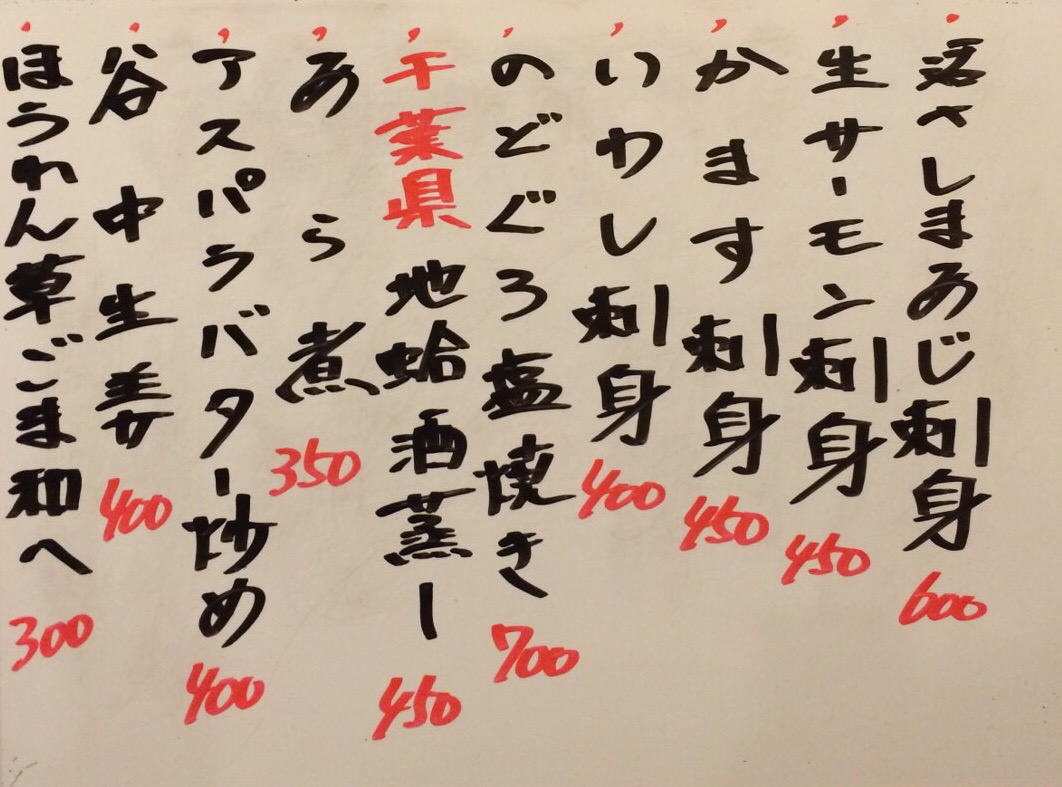 ・活〆しまあじ刺身 600
・生サーモン刺身 450
・かます刺身 450
・いわし刺身 400
・のどぐろ塩焼き 700
・千葉県 地蛤 酒蒸し 450
・あら煮 350
・アスパラバター炒め 400
・谷中生姜 400
・ほうれん草ごま和へ 300